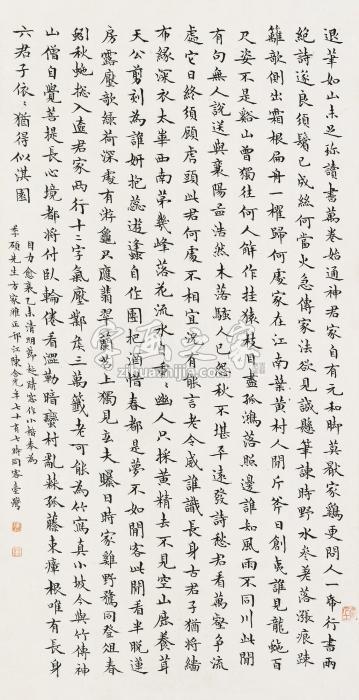 退筆如山未足珍讀書萬卷始通神君家自有元和脚莫厭家雞更問人一帋行書兩
絕詩遂良須鬢已成絲何當火急傳家法欲見誠懸筆諫時野水參差落漲痕疎
欹倒出霜根扁舟一櫂歸何處家在江南葉黃村人間斤斧日創夷誰見龍蛇百
尺姿不是谿山曾獨往何人解作挂猿枝目盡孤鴻落照邊誰知風雨不同川此間
有句無人說送與襄陽孟浩然木落騷人已怨秋不堪平遠發詩愁君看萬壑爭流
處它日終須顧虎頭此君何處不相宜況有能言老令威誰識長身古君子猶將緇
布緣深衣太華西南第幾峰落花流水自重重幽人只採黃精去不見空山鹿養茸
天公剪刻為誰妍抱蕊遊蜂自作團把酒惜春都是夢不如閒客此閒看半脫蓮
房露壓欹綠荷深處有游龜只應翡翠蘭苕上獨見玄夫曝日時家雞野鶩同登俎春
蚓秋蛇總入奩君家兩行十三字氣壓鄴侯三萬籤老可能為竹寫真小坡今與竹傳神
山僧自覺菩提長心境都將付臥輪倦看澀勒暗蠻村亂棘孤藤束瘴根唯有長身
六君子依依猶得似淇園
目力愈衰乙未清明起靖作小楷奉為
季碩先生方家雅正邗江陳含光年七十有七時同客臺灣
字画之家
zihuazhijia.com